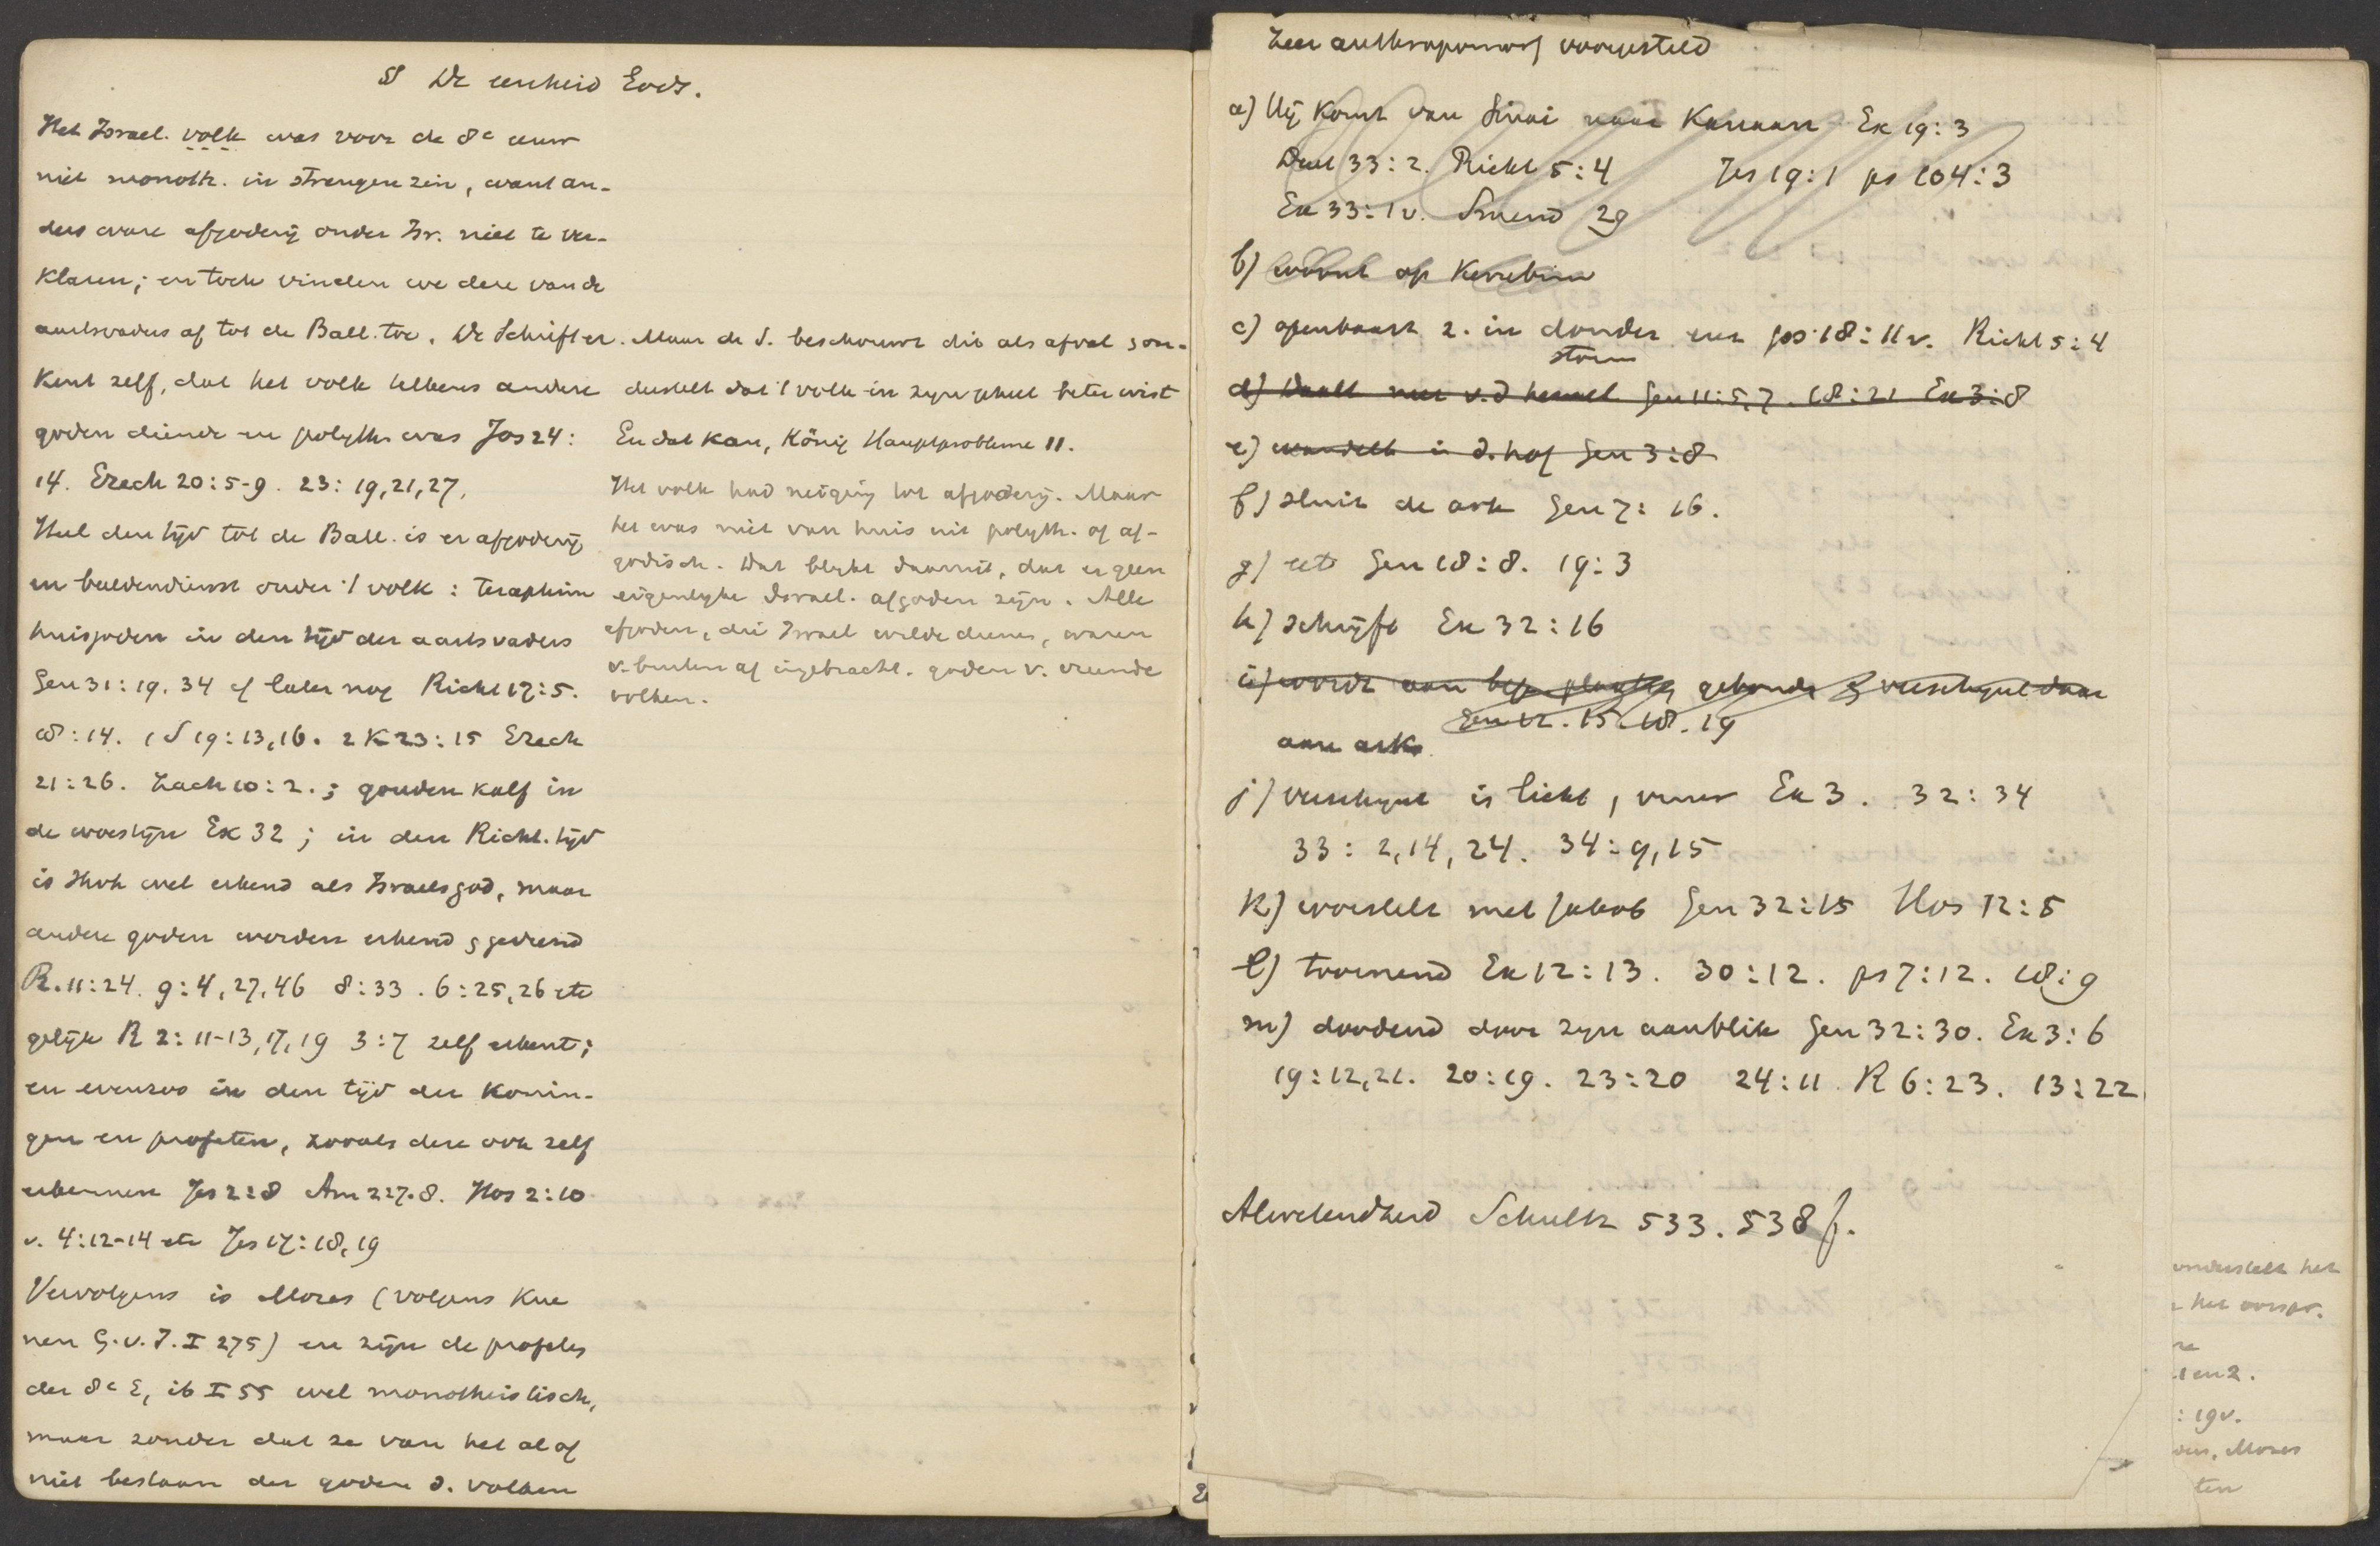 § De eenheid Gods.
Het Israel. volk was voor de 8e eeuw
niet monoth. in strengen zin, want an-
ders ware afgoderij onder Isr. niet te ver-
klaren; en toch vinden we deze van de
aartsvaders af tot de Ball. toe. De Schrift er-
kent zelf, dat het volk telkens andere
goden diende en polyth. was Jos 24:
14. Ezech 20:5-9. 23:19,21,27.
Heel den tijd tot de Ball. is er afgoderij
en beeldendienst onder 't volk: teraphim
huisgoden in den tijd der aartsvaders
Gen 31:19.34 cf later nog Richt 17:5.
18:14. 1 S 19:13,16. 2 K 23:15 Ezech
21:26. Zach 10:2.; gouden kalf in
de woestijn Ex 32; in den Richt. tijd
is Jhvh wel erkend als Israels god, maar
andere goden worden erkend & gediend
R. 11:24. 9:4,27,46 8:33. 6:25,26 etc
gelijk R 2:11-13,17,19 3:7 zelf erkent;
en evenzoo in den tijd der konin-
gen en profeten, zooals deze ook zelf
erkennen Jes 2:8 Am 2:7.8. Hos 2:10
v. 4:12-14 etc Jes 17:18,19
Vervolgens is Mozes (volgens Kue
nen G.v.I. I 275) en zijn de profeten
der 8e E, ib I 55 wel monotheistisch,
maar zonder dat ze van het al of
niet bestaan der goden d. volken
Maar de S. beschouwt dit als afval & on-
derstelt dat 't volk in zijn geheel beter wist
En dat kan, König Hauptprobleme 11.
Het volk had neiging tot afgoderij. Maar
het was niet van huis uit polyth. of af-
godisch. Dat blijkt daaruit, dat er geen
eigenlijke Israel. afgoden zijn. Alle
afgoden, die Israel wilde dienen, waren
v. buiten af ingebracht. goden v. vreemde
volken.
Zeer anthropomorf voorgesteld
a) Hij komt van Sinai naar Kanaan Ex 19:3
Deut 33:2. Richt 5:4 Jes 19:1 ps 104:3
Ex 33:1v. Smend 29
b) woont op Kerubim
c) openbaart z. in donder en Jos 18:11v. Richt 5:4
storm
d) Daalt neer v.d hemel Gen 11:5,7. 18:21 Ex 3:8
e) wandelt in d. hof Gen 3:8
f) sluit de ark Gen 7:16.
g) eet Gen 18:8. 19:3
h) schrijft Ex 32:16
i) wordt aan bep. plaatsen gebonden & verschijnt daar
Gen 12.15.18.19
aan ark
j) verschijnt in licht, vuur Ex 3. 32:34
33:2,14,24. 34:9,15
k) worstelt met Jakob Gen 32:15 Hos 12:5
l) toornend Ex 12:13. 30:12. ps 7:12. 18:9
m) doodend door zijn aanblik Gen 32:30. Ex 3:6
19:12,21. 20:19. 23:20 24:11 R 6:23. 13:22
Alwetendheid Schultz 533. 538 f.
onderstelt het
het oorspr.
1 en 2.
: 19v.
Mozes
ten